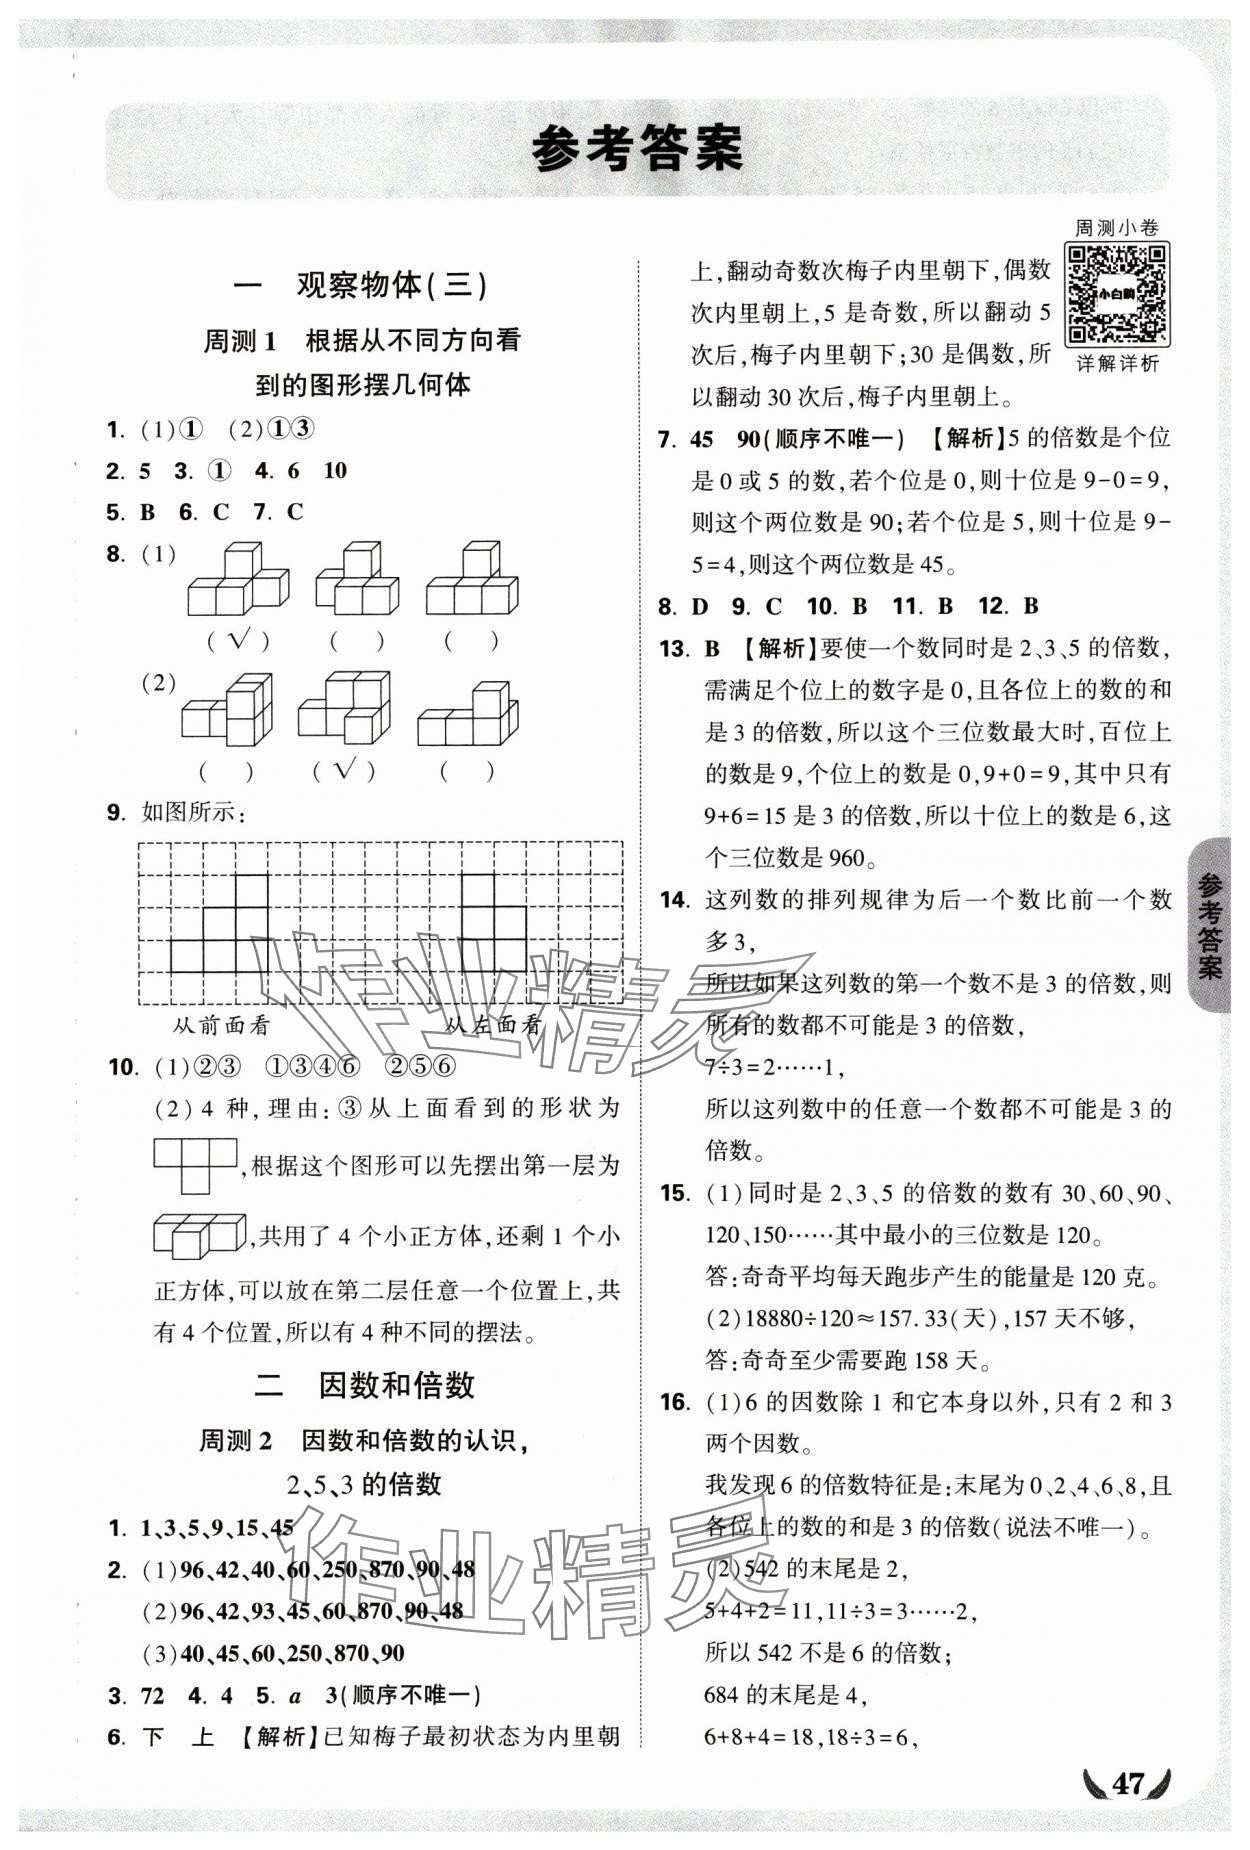 参考答案
一 观察物体(三)
周测1 根据从不同方向看
到的图形摆几何体
1. (1)① (2)①③
2. 5 3. ① 4. 6 10
5. B 6. C 7. C
8. (1)
(√) ( ) ( )
(2)
( ) (√) ( )
9. 如图所示:
从前面看 从左面看
10. (1)②③ ①③④⑥ ②⑤⑥
(2)4种,理由:③从上面看到的形状为
,根据这个图形可以先摆出第一层为
,共用了4个小正方体,还剩1个小
正方体,可以放在第二层任意一个位置上,共
有4个位置,所以有4种不同的摆法。
二 因数和倍数
周测2 因数和倍数的认识,
2、5、3的倍数
1. 1、3、5、9、15、45
2. (1)96、42、40、60、250、870、90、48
(2)96、42、93、45、60、870、90、48
(3)40、45、60、250、870、90
3. 72 4. 4 5. a 3(顺序不唯一)
6. 下 上 【解析】已知梅子最初状态为内里朝
周测小卷
小白鸥
详解详析
上,翻动奇数次梅子内里朝下,偶数
次内里朝上,5是奇数,所以翻动5
次后,梅子内里朝下;30是偶数,所
以翻动30次后,梅子内里朝上。
7. 45 90(顺序不唯一) 【解析】5的倍数是个位
是0或5的数,若个位是0,则十位是9-0=9,
则这个两位数是90;若个位是5,则十位是9-
5=4,则这个两位数是45。
8. D 9. C 10. B 11. B 12. B
13. B 【解析】要使一个数同时是2、3、5的倍数,
需满足个位上的数字是0,且各位上的数的和
是3的倍数,所以这个三位数最大时,百位上
的数是9,个位上的数是0,9+0=9,其中只有
9+6=15是3的倍数,所以十位上的数是6,这
个三位数是960。
14. 这列数的排列规律为后一个数比前一个数
多3,
所以如果这列数的第一个数不是3的倍数,则
所有的数都不可能是3的倍数,
7÷3=2……1,
所以这列数中的任意一个数都不可能是3的
倍数。
15. (1)同时是2、3、5的倍数的数有30、60、90、
120、150……其中最小的三位数是120。
答:奇奇平均每天跑步产生的能量是120克。
(2)18880÷120≈157.33(天),157天不够,
答:奇奇至少需要跑158天。
16. (1)6的因数除1和它本身以外,只有2和3
两个因数。
我发现6的倍数特征是:末尾为0、2、4、6、8,且
各位上的数的和是3的倍数(说法不唯一)。
(2)542的末尾是2,
5+4+2=11,11÷3=3……2,
所以542不是6的倍数;
684的末尾是4,
6+8+4=18,18÷3=6,
参考答案
47
作业精灵
作业精灵